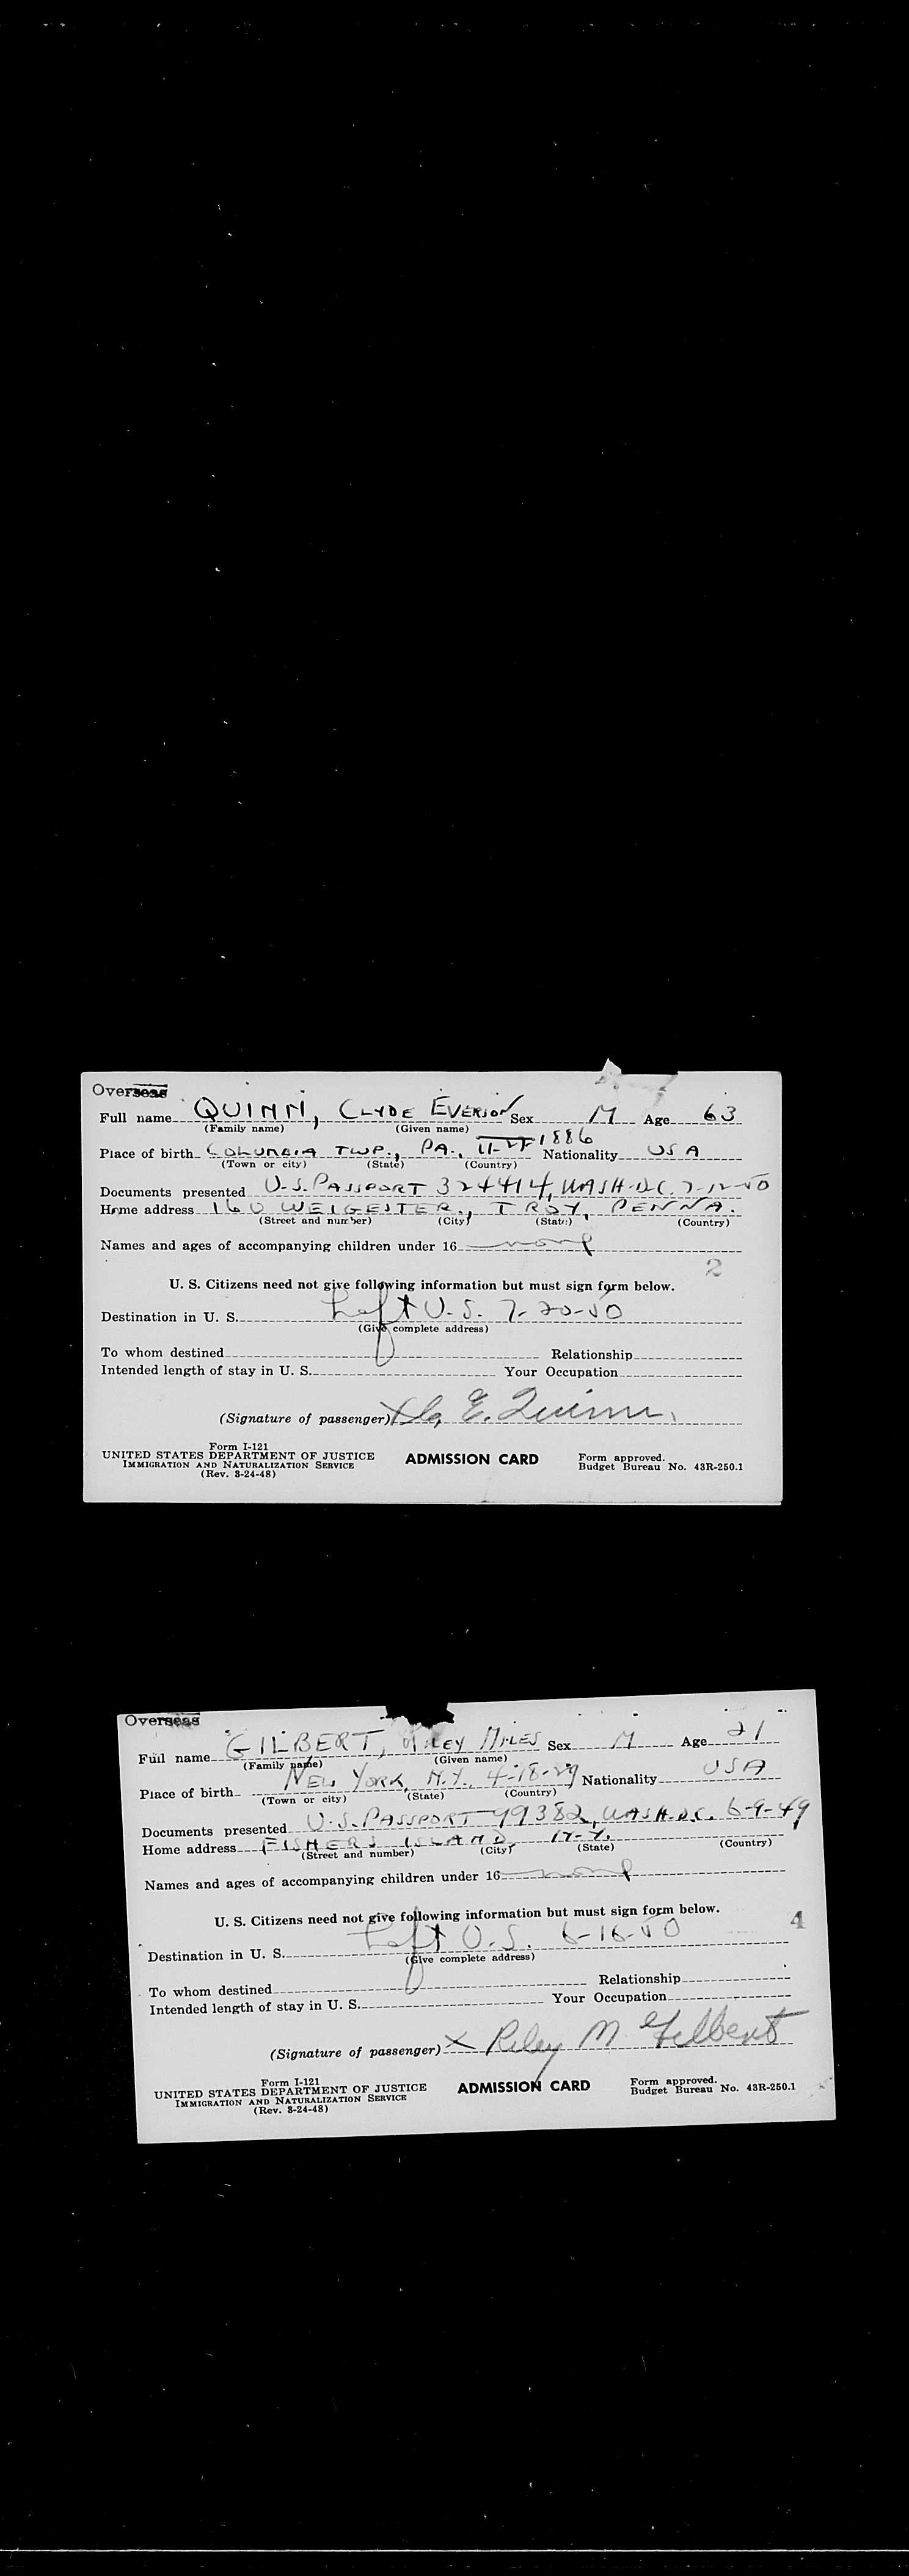 Overseas
Full name QUINN, CLYDE EVERSON Sex M Age 63
(Family name) (Given name)
1886
Place of birth COLUMBIA TWP., PA., 11-27 Nationality USA
(Town or city) (State) (Country)
Documents presented U.S. PASSPORT 324414, WASH. DC. 7-12-50
Home address 160 WEIGESTER., TROY, PENNA.
(Street and number) (City) (State) (Country)
Names and ages of accompanying children under 16 none
2
U. S. Citizens need not give following information but must sign form below.
Destination in U. S. Left U.S. 7-20-50
(Give complete address)
To whom destined Relationship
Intended length of stay in U. S. Your Occupation
(Signature of passenger) X E. Quinn
Form I-121
UNITED STATES DEPARTMENT OF JUSTICE
IMMIGRATION AND NATURALIZATION SERVICE
(Rev. 3-24-48)
ADMISSION CARD
Form approved.
Budget Bureau No. 43R-250.1
Overseas
Full name GILBERT, RILEY MILES Sex M Age 21
(Family name) (Given name)
Place of birth NEW YORK, N.Y., 4-18-29 Nationality USA
(Town or city) (State) (Country)
Documents presented U.S. PASSPORT 99382, WASH. DC. 6-9-49
Home address FISHERS ISLAND, N.Y.
(Street and number) (City) (State) (Country)
Names and ages of accompanying children under 16 none
U. S. Citizens need not give following information but must sign form below.
4
Destination in U. S. Left U.S. 6-16-50
(Give complete address)
To whom destined Relationship
Intended length of stay in U. S. Your Occupation
(Signature of passenger) X Riley M Gilbert
Form I-121
UNITED STATES DEPARTMENT OF JUSTICE
IMMIGRATION AND NATURALIZATION SERVICE
(Rev. 3-24-48)
ADMISSION CARD
Form approved.
Budget Bureau No. 43R-250.1